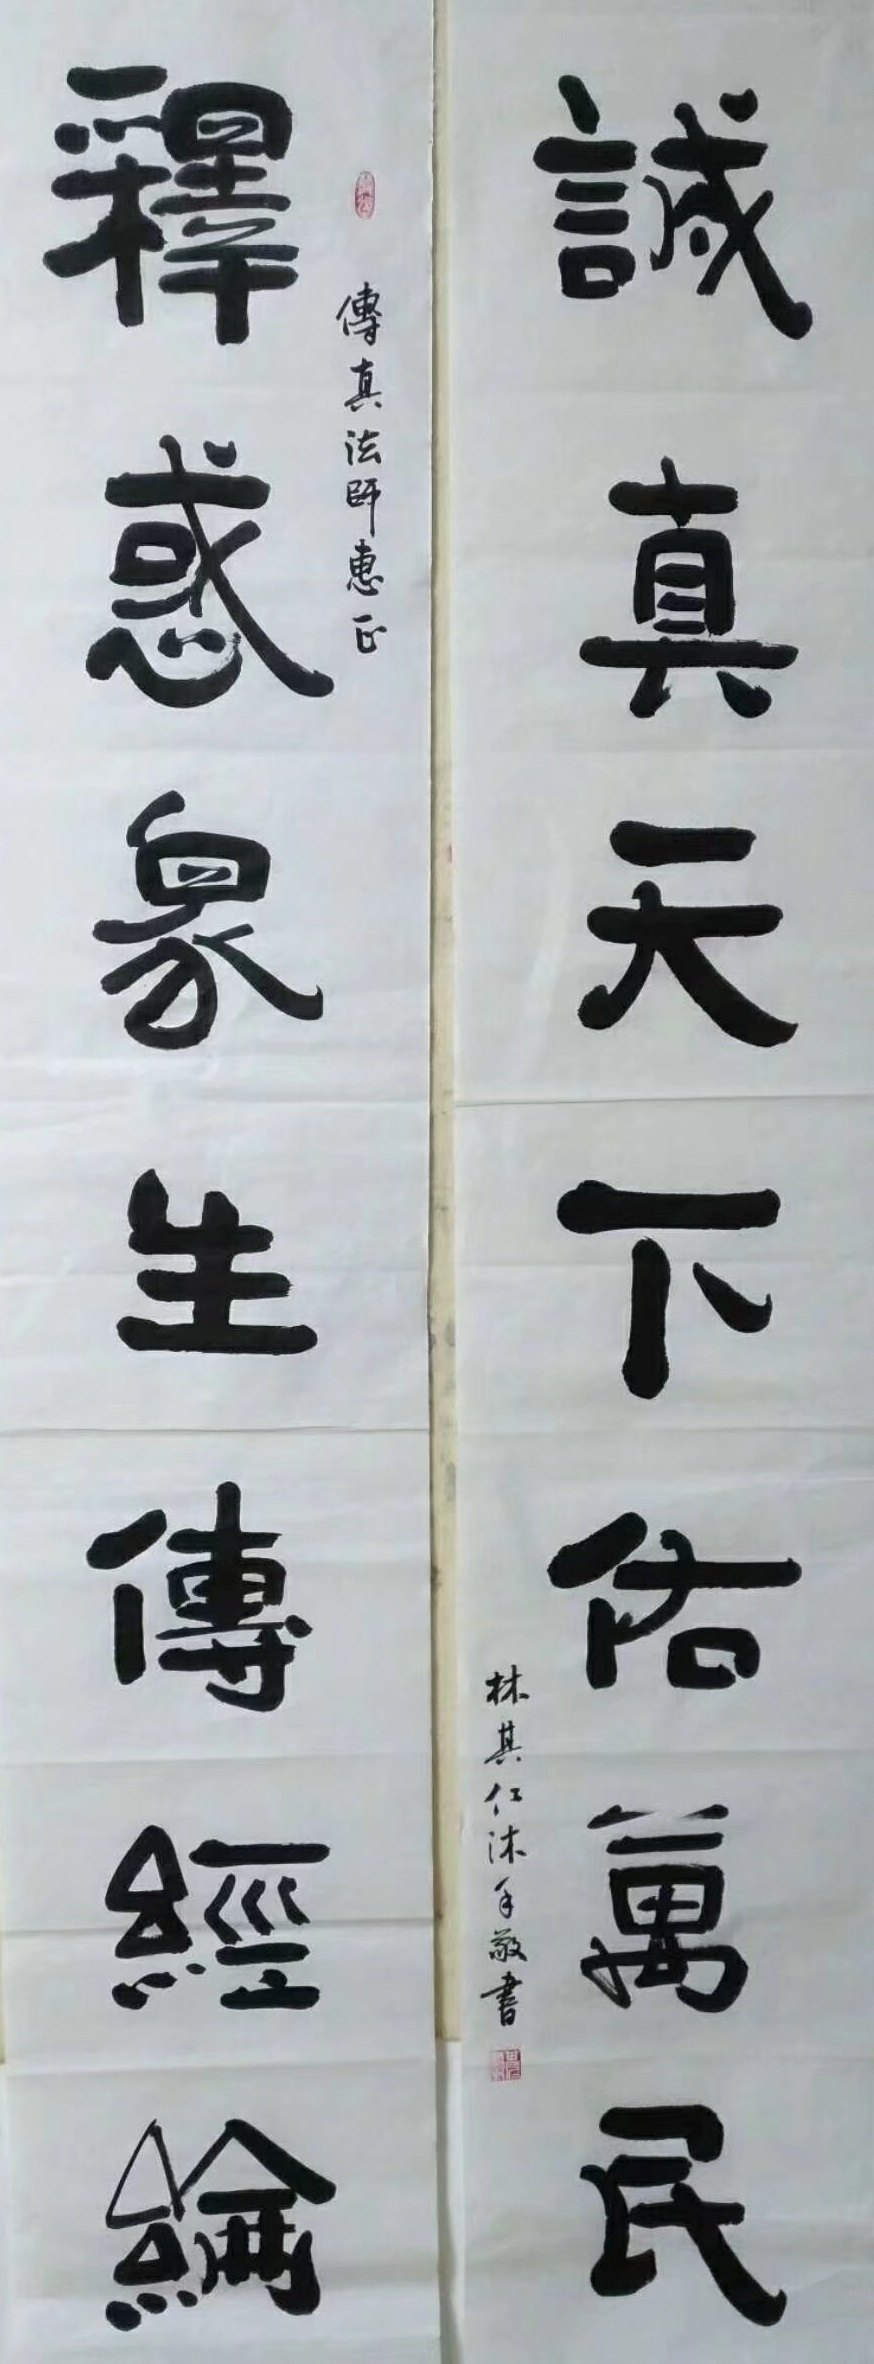 誠真天下佑萬民
林其仁沐手敬書
傳真法師惠正
釋惑衆生傳經綸